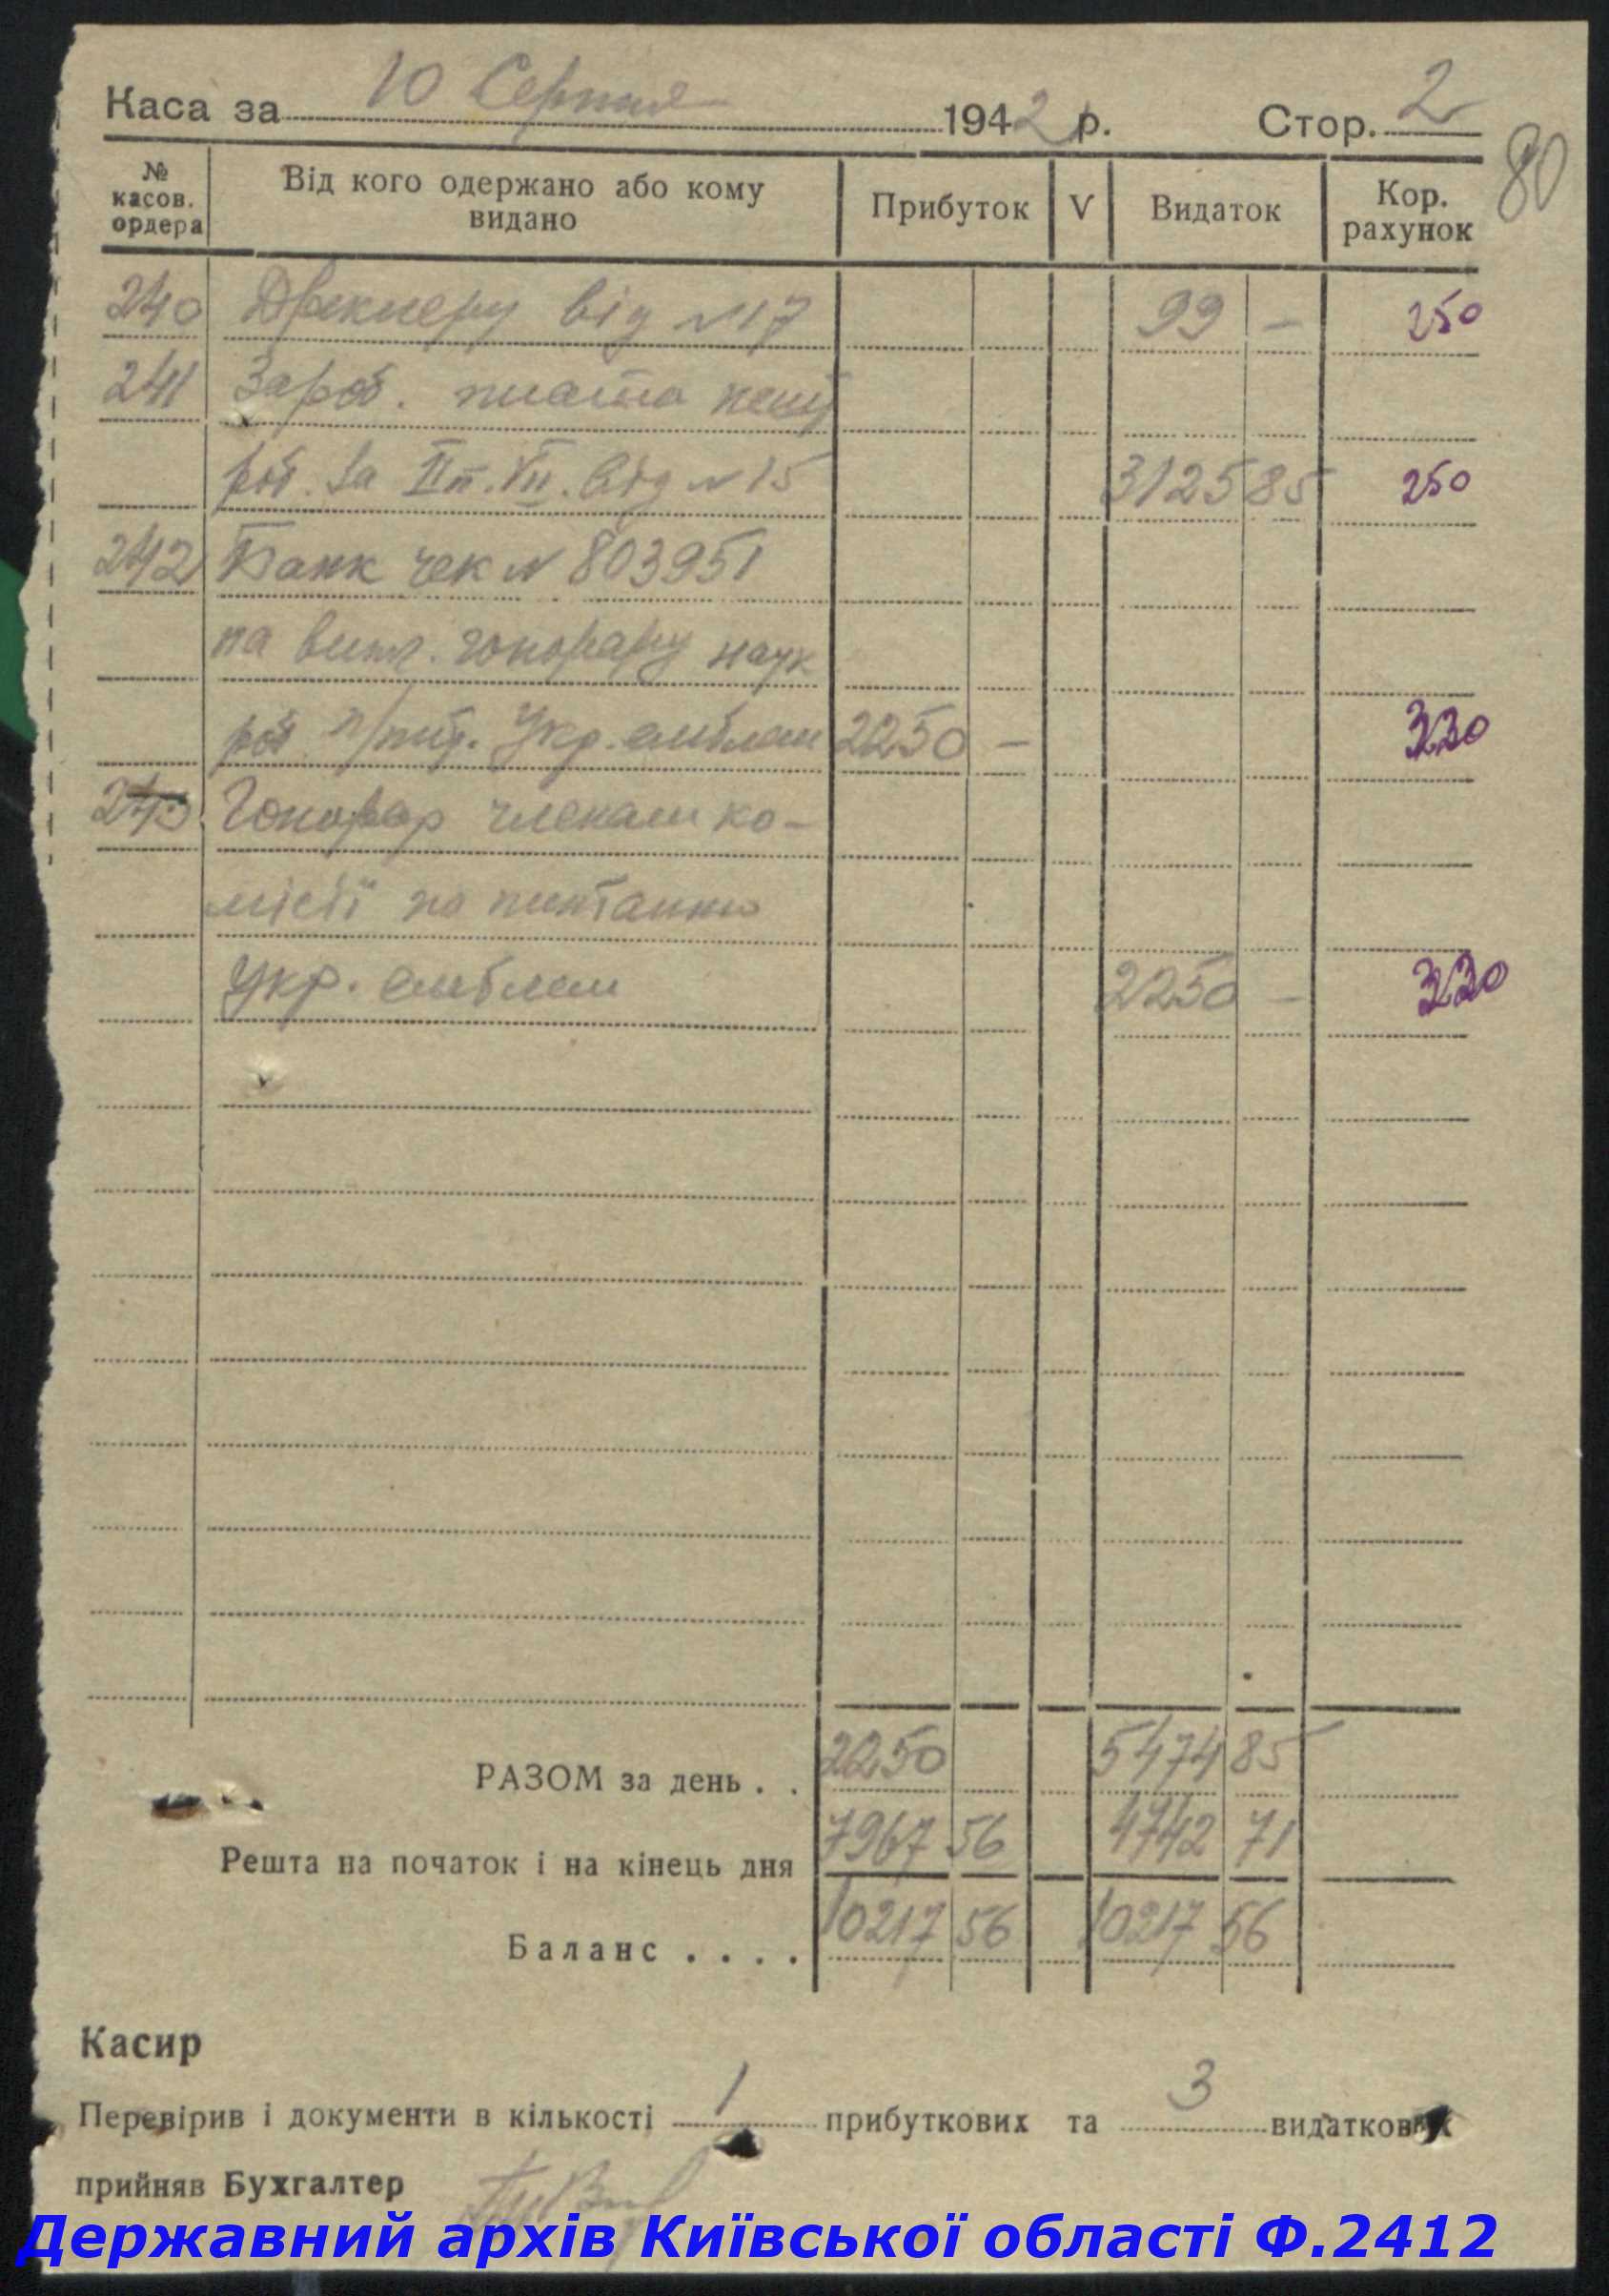 Каса за 10 Серпня 1942 р. Стор. 2
80
№ касов. ордера Від кого одержано або кому видано Прибуток V Видаток Кор. рахунок
240 від №17 99 – 250
241 Зароб. платна
роб. за ІІ п. VII. від №15 3125 85 250
242 Банк чек № 803951
на випл. гонорару наук
роб. Укр. емблем 2250 – 330
243 Гонорар членам ко-
місії по питанню
Укр. емблем 2250 – 330
РАЗОМ за день . . 2250 5474 85
Решта на початок і на кінець дня 7967 56 4742 71
Баланс . . . . 10217 56 10217 56
Касир
Перевірив і документи в кількості 1 прибуткових та 3 видаткових
прийняв Бухгалтер
Державний архів Київської області Ф.2412